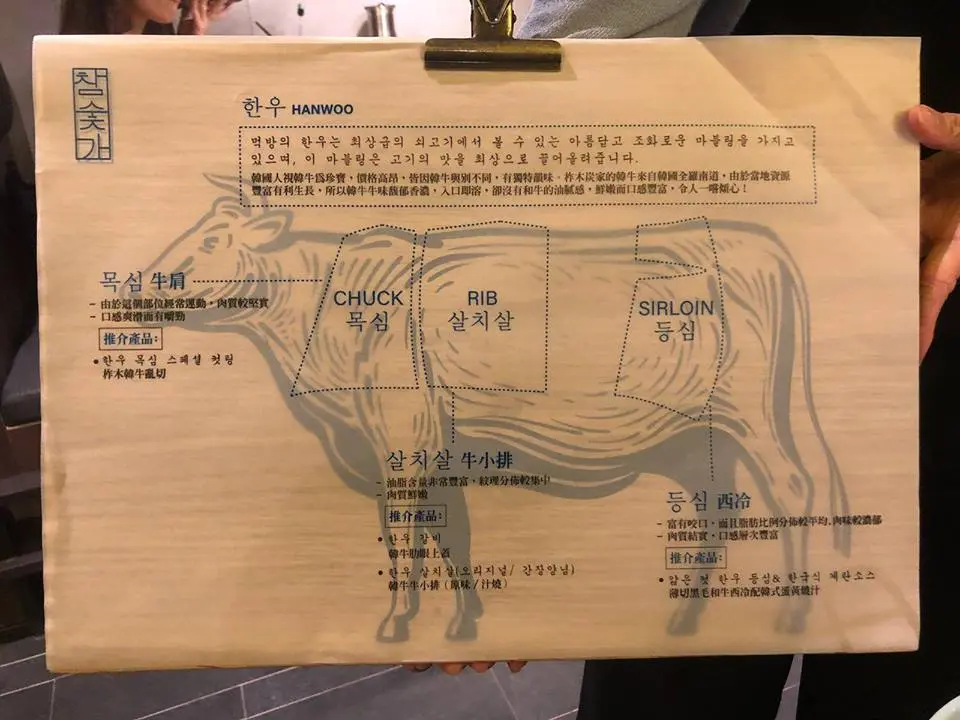 참숯가
한우 HANWOO
먹방의 한우는 최상급의 쇠고기에서 볼 수 있는 아름답고 조화로운 마블링을 가지고
있으며, 이 마블링은 고기의 맛을 최상으로 끌어올려줍니다.
韓國人視韓牛為珍寶，價格高昂，皆因韓牛與別不同，有獨特韻味。柞木炭家的韓牛來自韓國全羅南道，由於當地資源
豐富有利生長，所以韓牛牛味馥郁香濃，入口即溶，卻沒有和牛的油膩感，鮮嫩而口感豐富，令人一嚐傾心！
목심 牛肩
- 由於這個部位經常運動，肉質較堅實
- 口感爽滑而有嚼勁
推介產品：
• 한우 목심 스페셜 컷팅
柞木韓牛亂切
CHUCK
목심
RIB
살치살
SIRLOIN
등심
살치살 牛小排
- 油脂含量非常豐富，紋理分佈較集中
- 肉質鮮嫩
推介產品：
• 한우 갈비
韓牛肋眼上蓋
• 한우 살치살(오리지널/ 간장양념)
韓牛牛小排（原味/汁燒）
등심 西冷
- 富有咬口，而且脂肪比例分佈較平均，肉味較濃郁
- 肉質結實，口感層次豐富
推介產品：
• 얇은 컷 한우 등심& 한국식 계란소스
薄切黑毛和牛西冷配韓式蛋黃燒汁